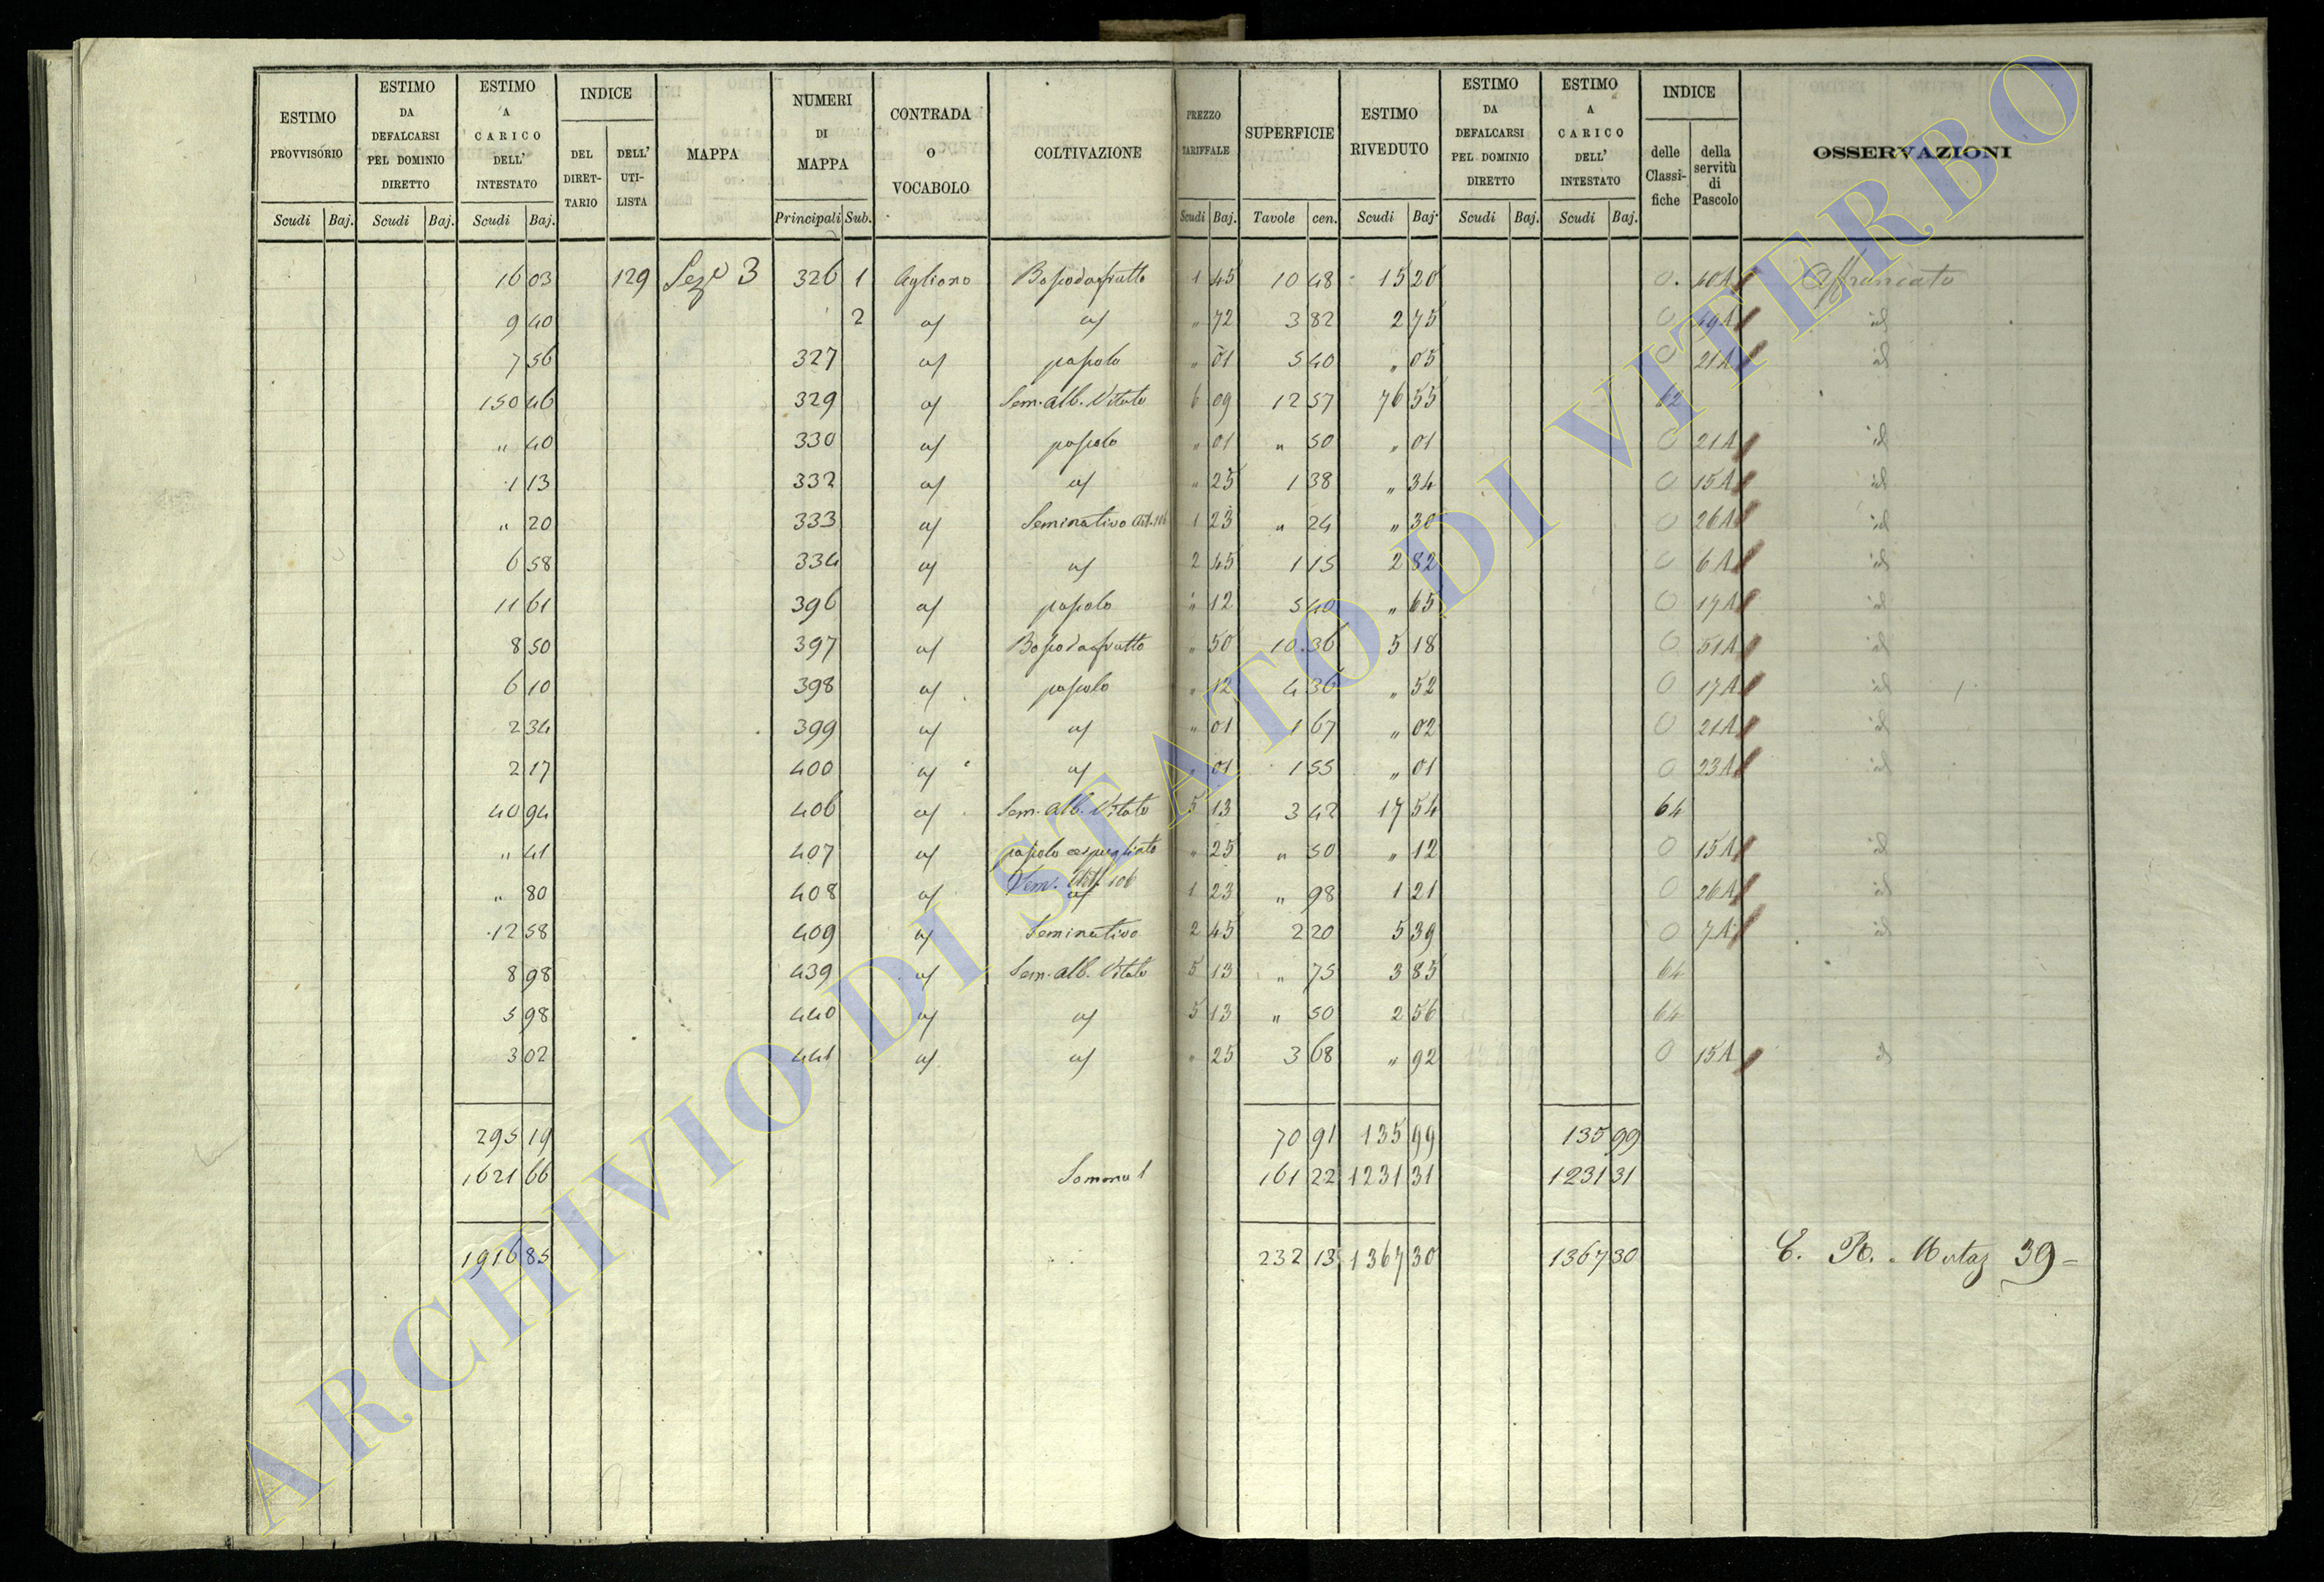 ESTIMO PROVVISORIO Scudi Baj.
ESTIMO DA DEFALCARSI PEL DOMINIO DIRETTO Scudi Baj.
ESTIMO A CARICO DELL' INTESTATO Scudi Baj.
INDICE DEL DIRET- TARIO DELL' UTI- LISTA
MAPPA
NUMERI DI MAPPA Principali Sub.
CONTRADA O VOCABOLO
COLTIVAZIONE
PREZZO TARIFFALE Scudi Baj.
SUPERFICIE Tavole cen.
ESTIMO RIVEDUTO Scudi Baj.
ESTIMO DA DEFALCARSI PEL DOMINIO DIRETTO Scudi Baj.
ESTIMO A CARICO DELL' INTESTATO Scudi Baj.
INDICE delle Classi- fiche della servitù di Pascolo
OSSERVAZIONI
16 03 129 Sez.e 3 326 1 Agliano Bosco da frutto 1 45 10 48 15 20 0 40A Affrancato
9 40 2 " 72 3 82 2 75 0 49A id
7 56 327 pascolo " 01 5 40 " 05 0 21A id
150 46 329 Sem. alb. Vitato 6 09 12 57 76 55 62
" 40 330 pascolo " 01 " 50 " 01 0 21A id
1 13 332 " 25 1 38 " 34 0 15A id
" 20 333 Seminativo Art. 106 1 23 " 24 " 30 0 26A id
6 58 334 2 45 1 15 2 82 0 6A id
11 61 396 pascolo " 12 5 40 " 65 0 17A id
8 50 397 Bosco da frutto " 50 10 36 5 18 0 51A id
6 10 398 pascolo " 12 4 36 " 52 0 17A id
2 34 399 " 01 1 67 " 02 0 21A id
2 17 400 " 01 1 55 " 01 0 23A id
40 94 406 Sem. alb. Vitato 5 13 3 42 17 54 64
" 41 407 pascolo cespugliato " 25 " 50 " 12 0 15A id
" 80 408 Sem. Art. 106 1 23 " 98 1 21 0 26A id
12 58 409 Seminativo 2 45 2 20 5 39 0 7A id
8 98 439 Sem. alb. Vitato 5 13 " 75 3 85 64
5 98 440 5 13 " 50 2 56 64
3 02 441 " 25 3 68 " 92 0 15A
295 19 70 91 135 99 135 99
1621 66 161 22 1231 31 1231 31
1916 85 232 13 1367 30 1367 30 C. R. 39
ARCHIVIO DI STATO DI VITERBO